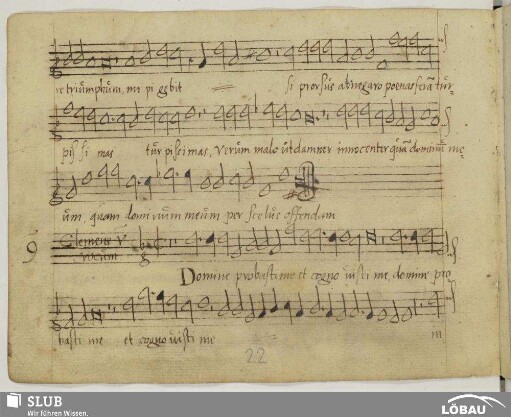 re triumphum, mi pigebit si prorsus abnegaro poenas feram tur,
pis si mas tur pissimas, Verum malo ut damner innocenter quam dominum me
um, quam domi num meum per scelus offendam
9 Clemens V
vocum
Domine probasti me et cogno visti me, domine pro
basti me et cogno visti me m
22
SLUB
Wir führen Wissen.
LÖBAU